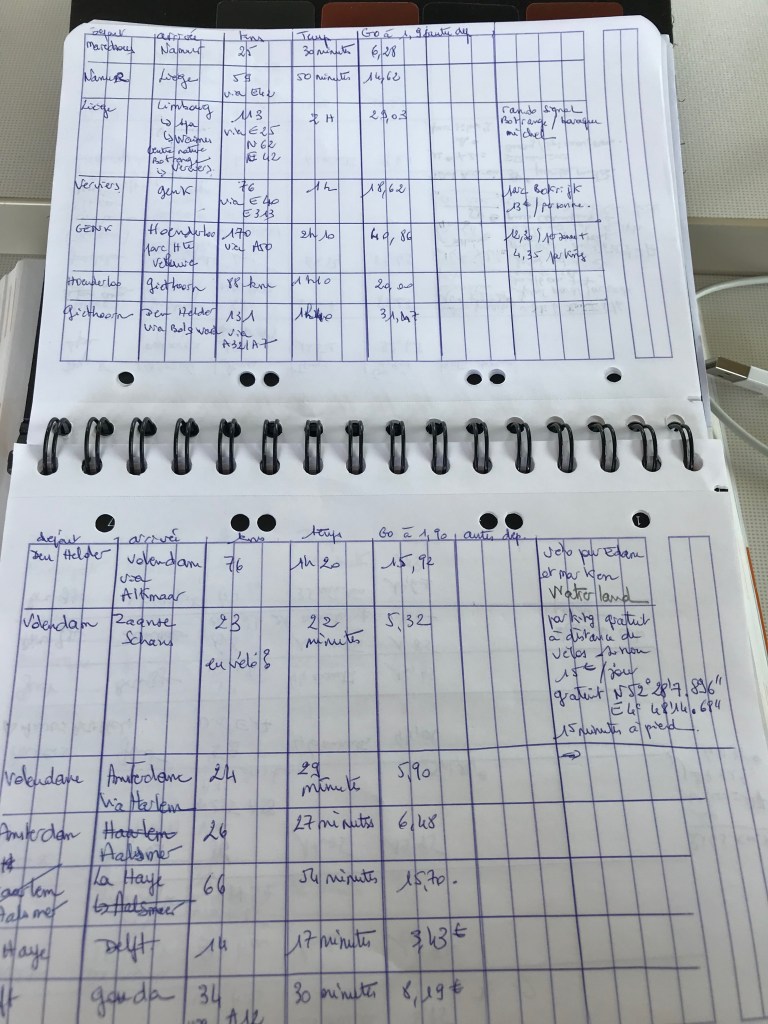 départ arrivée kms Temps GO à 1,90 autre dep
Maredsous Namur 25 30 minutes 6,28
Namur Liège 59 50 minutes 14,62
via E42
Liège Limbourg 113 2H 29,03 rando signal
via E25 Botrange / baraque
N62 michel
centre nature E42
Botrange
↳ Verviers
Verviers genk 76 1h 18,62 parc Bokrijk
via E40 13€ / personne.
E313
GENK Hoenderloo 170 2h10 40,86 12,30 /
parc Hte via A50 4,35 parking
Veluwe
Hoenderloo giethoorn 88 km 1h10 20,00
giethoorn Den Helder 131 1h40 31,47
via Bolsward via
A32/A7
départ arrivée kms temps GO à 1,90 autres dep.
Den Helder Volendam 76 1h20 15,92 vélo par Edam
via et marken
Alkmaar Waterland
Volendam Zaanse 23 22 5,32 parking gratuit
Schans minutes à distance de
en vélo? vélos sinon
15€ / jour
gratuit N52° 28'7.896"
E4° 48'14.68"
15 minutes à pied
Volendam Amsterdam 24 29 5,90
via Harlem minute
Amsterdam Haarlem 26 27 minutes 6,48
Aalsmer
aarlem La Haye 66 54 minutes 15,70.
Aalsmer ↳ Aalsmeer
Haye Delft 14 17 minutes 3,43€
ft gouda 34 30 minutes 8,19€
via A12